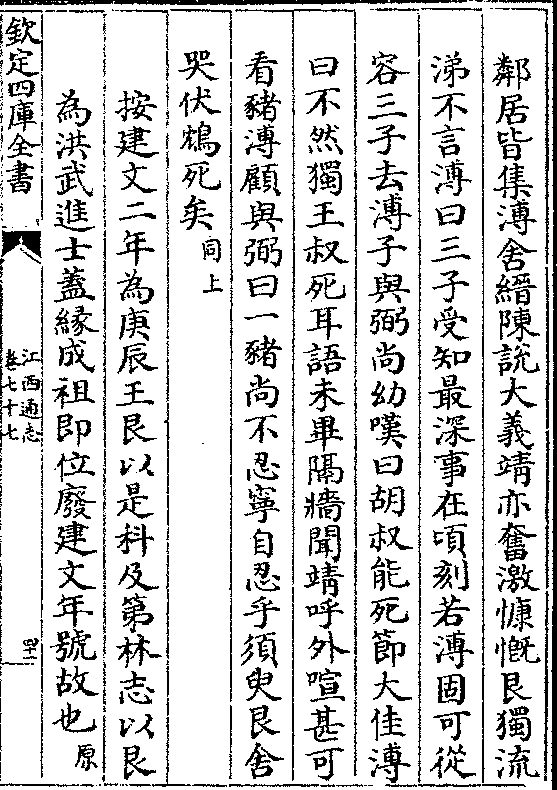 鄰居皆集溥舍縉陳說大義靖亦奮激慷慨艮獨流
涕不言溥曰三子受知最深事在頃刻若溥固可從
容三子去溥子與弼尚幼嘆曰胡叔能死節大佳溥
曰不然獨王叔死耳語未畢隔牆聞靖呼外喧甚可
看豬溥顧與弼曰一豬尚不忍寧自忍乎須臾艮舍
哭伏鴆死矣同上
按建文二年為庚辰王艮以是科及第林志以艮
為洪武進士蓋緣成祖即位廢建文年號故也原
欽定四庫全書
江西通志
卷七十七
四十一